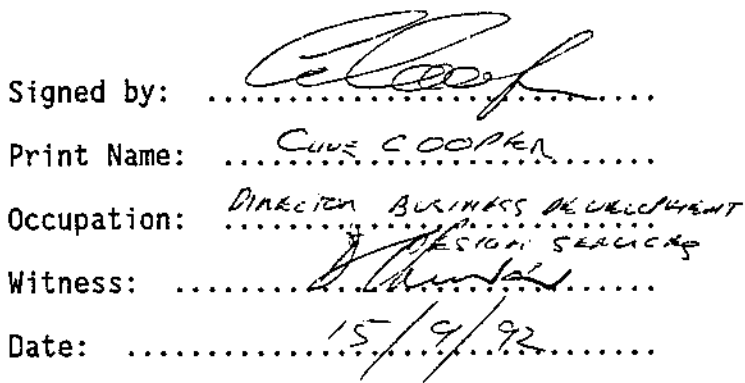 Signed by: C Cooper
Print Name: CLIVE COOPER
Occupation: DIRECTOR BUSINESS DEVELOPMENT
& DESIGN SERVICES
Witness:
Date: 15/9/92